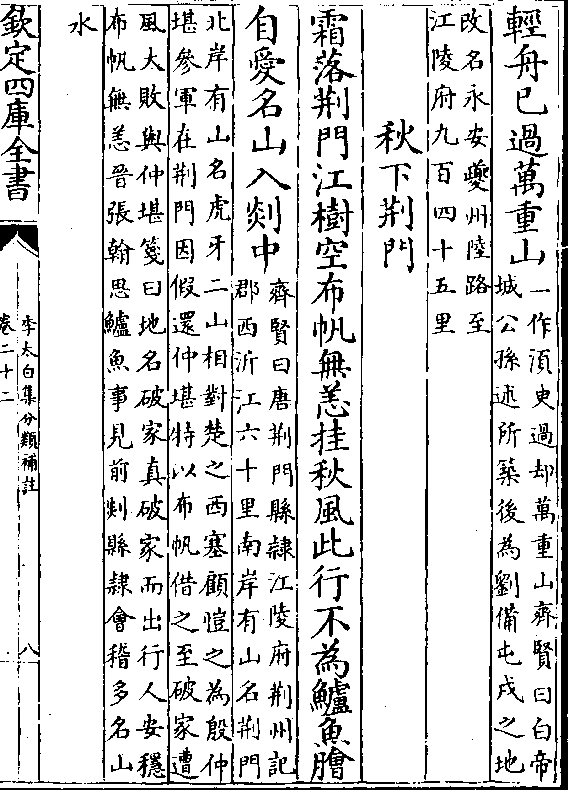 輕舟已過萬重山一作須㬰過却萬重山齊賢曰白帝
城公孫述所築後為劉備屯戍之地
改名永安夔州陸路至
江陵府九百四十五里
秋下荆門
霜落荆門江樹空布帆無恙挂秋風此行不為鱸魚膾
自愛名山入剡中齊賢曰唐荆門縣隷江陵府荆州記
郡西泝江六十里南岸有山名荆門
北岸有山名虎牙二山相對楚之西塞顧愷之為殷仲
堪參軍在荆門因假還仲堪特以布帆借之至破家遭
風大敗與仲堪箋曰地名破家真破家而出行人安穩
布帆無恙晉張翰思鱸魚事見前剡縣隷會稽多名山
水
欽定四庫全書
李太白集分類補註
卷二十二
八